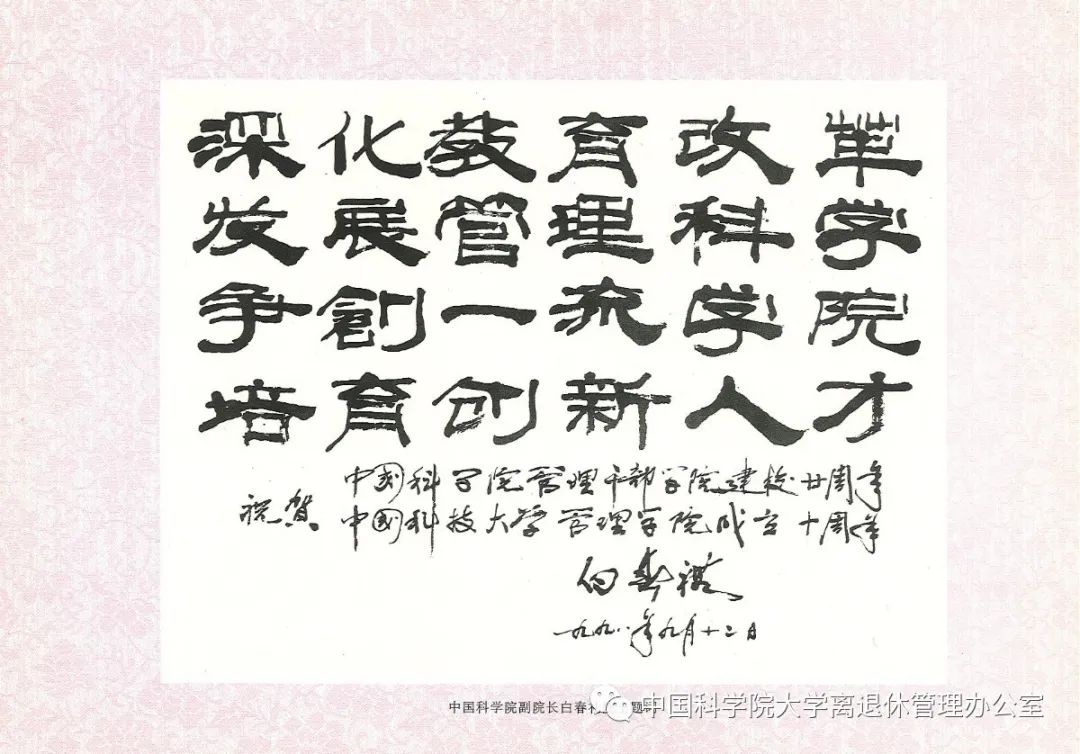 深化教育改革
发展管理科学
争創一流学院
培育创新人才
祝贺
中国科学院管理干部学院建校廿周年
中國科技大學管理学院成立十周年
白春礼
一九九八年九月十二日
中国科学院副院长白春礼 题
中国科学院大学离退休管理办公室